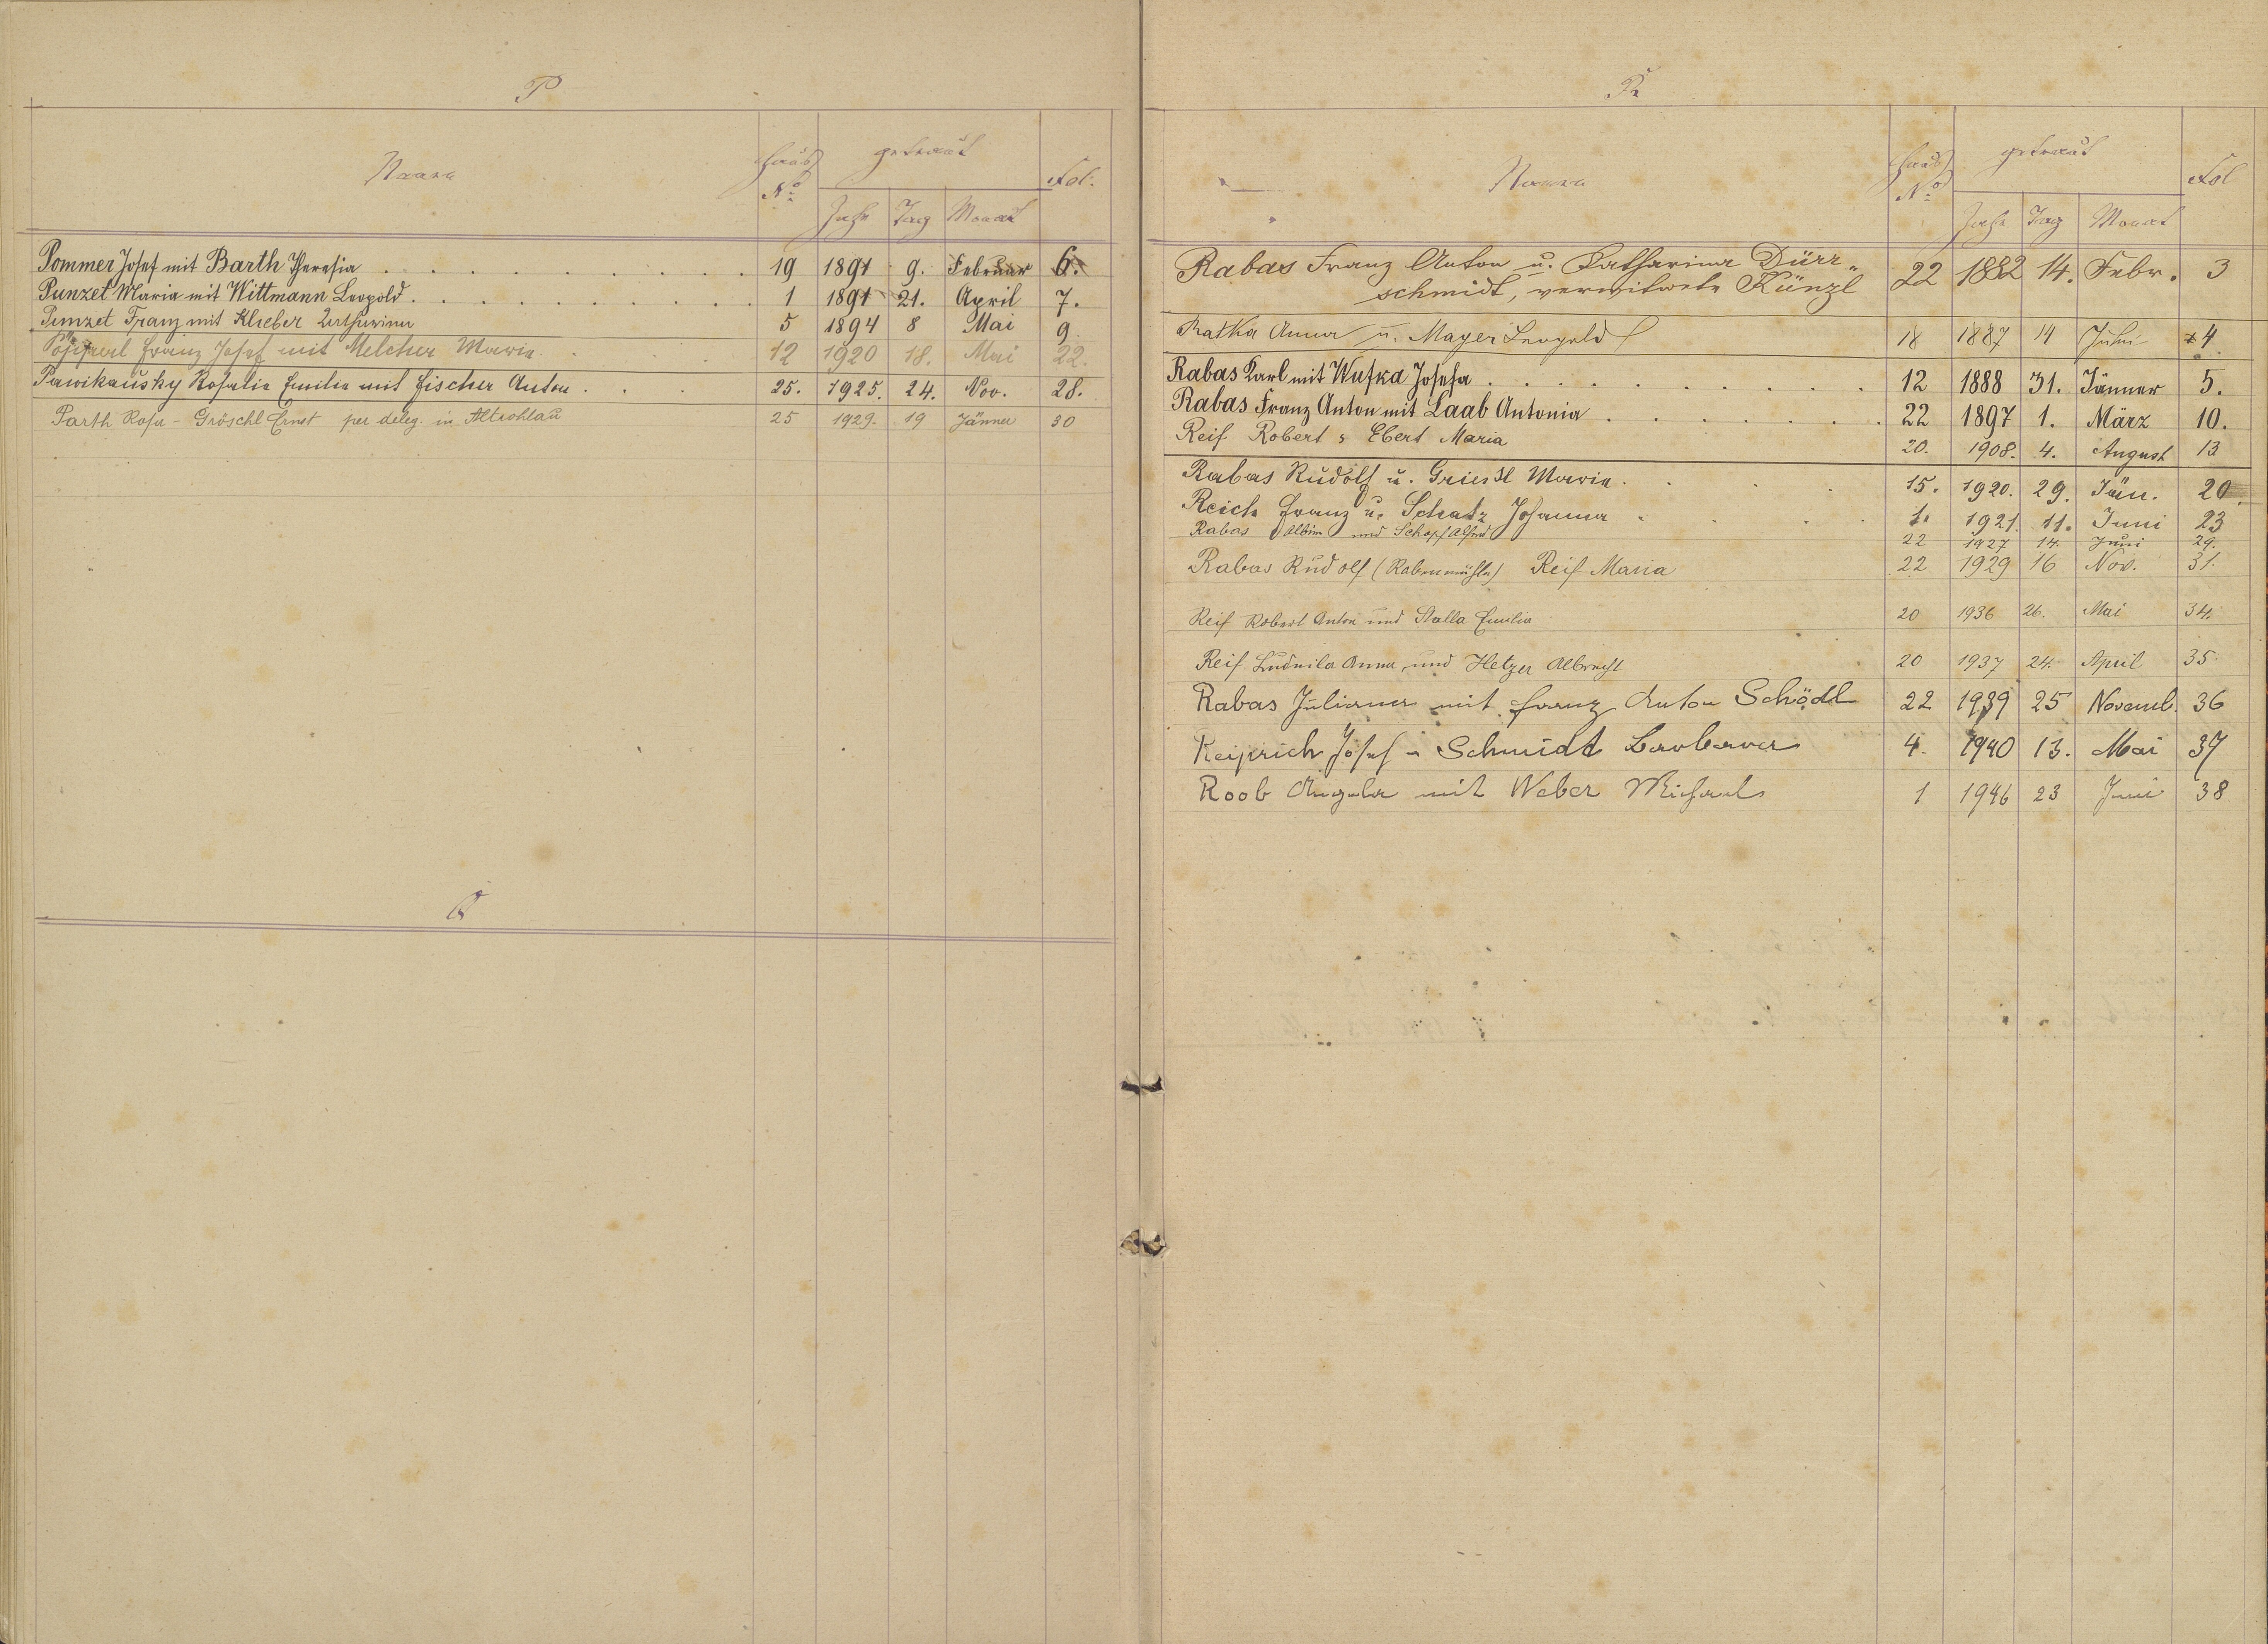 P
Name Haus No. getraut Fol.
Jahr Tag Monat
Pommer Josef mit Barth Theresia 19 1891 9. Februar 6.
Punzet Maria mit Wittmann Leopold 1 1891 21. April 7.
Punzet Franz mit Klieber 5 1894 8 Mai 9
Franz Josef mit Melcher Maria 12 1920 18. Mai 22.
Pawikausky Rosalia Emilia mit Fischer Anton 25. 1925. 24. Nov. 28.
Parth Rosa - Gröschl Ernst per deleg. in Altrohlau 25 1929. 19 Jänner 30
Q
R
Name Haus No. getraut Fol
Jahr Tag Monat
Rabas Franz Anton u. Katharina Dürr„
schmidt, verwitwete Künzl 22 1882 14. Febr. 3
Ratka Anna u. Mayer Leopold 18 1887 14 Juni 4
Rabas Karl mit Wufka Josefa 12 1888 31. Jänner 5.
Rabas Franz Anton mit Laab Antonia 22 1897 1. März 10.
Reif Robert & Ebert Maria 20. 1908. 4. August 13
Rabas Rudolf u. Griessl Maria 15. 1920. 29. Jän. 20.
Reich Franz u. Schatz Johanna 1. 1921. 11. Juni 23
Rabas Albin und Schopf 22 1927 14. Juni 29.
Rabas Rudolf (Rabenmühle) Reif Maria 22 1929 16 Nov. 31.
Reif Robert Anton und Stalla Emilia 20 1936 26. Mai 34.
Reif Ludmila Anna, und Hetzer Albrecht 20 1937 24. April 35.
Rabas Juliana mit Franz Anton Schödl 22 1939 25 Novemb. 36
Keiprich Josef u Schmidt Barbara 4. 1940 13. Mai 37
Roob Angela mit Weber Michael 1 1946 23 Juni 38